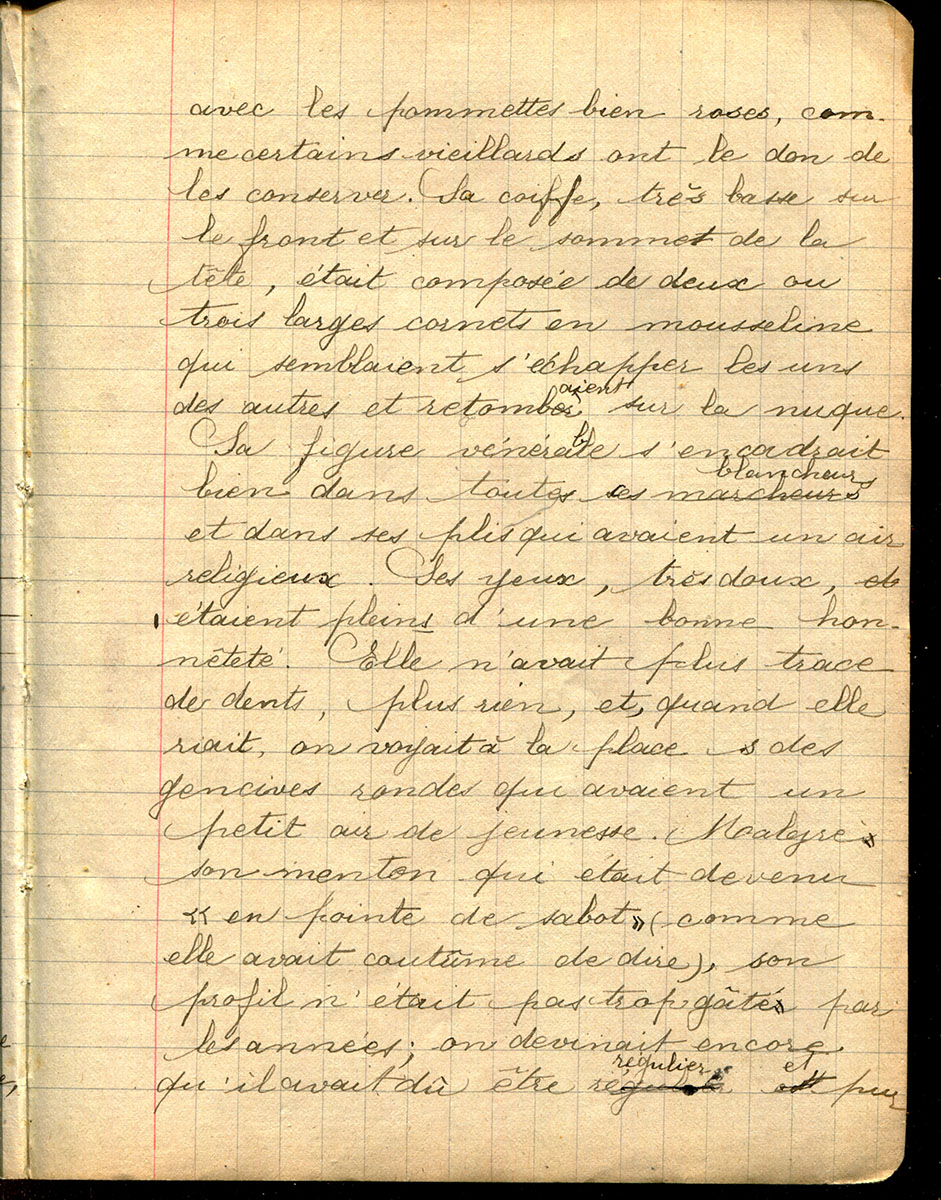 avec les pommettes bien roses, com-
me certains vieillards ont le don de
les conserver. Sa coiffe, très basse sur
le front et sur le sommet de la
tête, était composée de deux ou
trois larges cornets en mousseline
qui semblaient s'échapper les uns
aient
des autres et retomber sur la nuque.
Sa figure vénérable s'encadrait
blancheurs
bien dans toutes ses marcheurs
et dans ses plis qui avaient un air
religieux. Ses yeux, très doux, et
étaient pleins d'une bonne hon-
nêteté. Elle n'avait plus trace
de dents, plus rien, et, quand elle
riait, on voyait à la place s des
gencives rondes qui avaient un
petit air de jeunesse. Malgré
son menton qui était devenu
« en pointe de sabot » (comme
elle avait coutûme de dire), son
profil n'était pas trop gâté par
les années; on devinait encore
régulier et
qu'il avait dû être pur